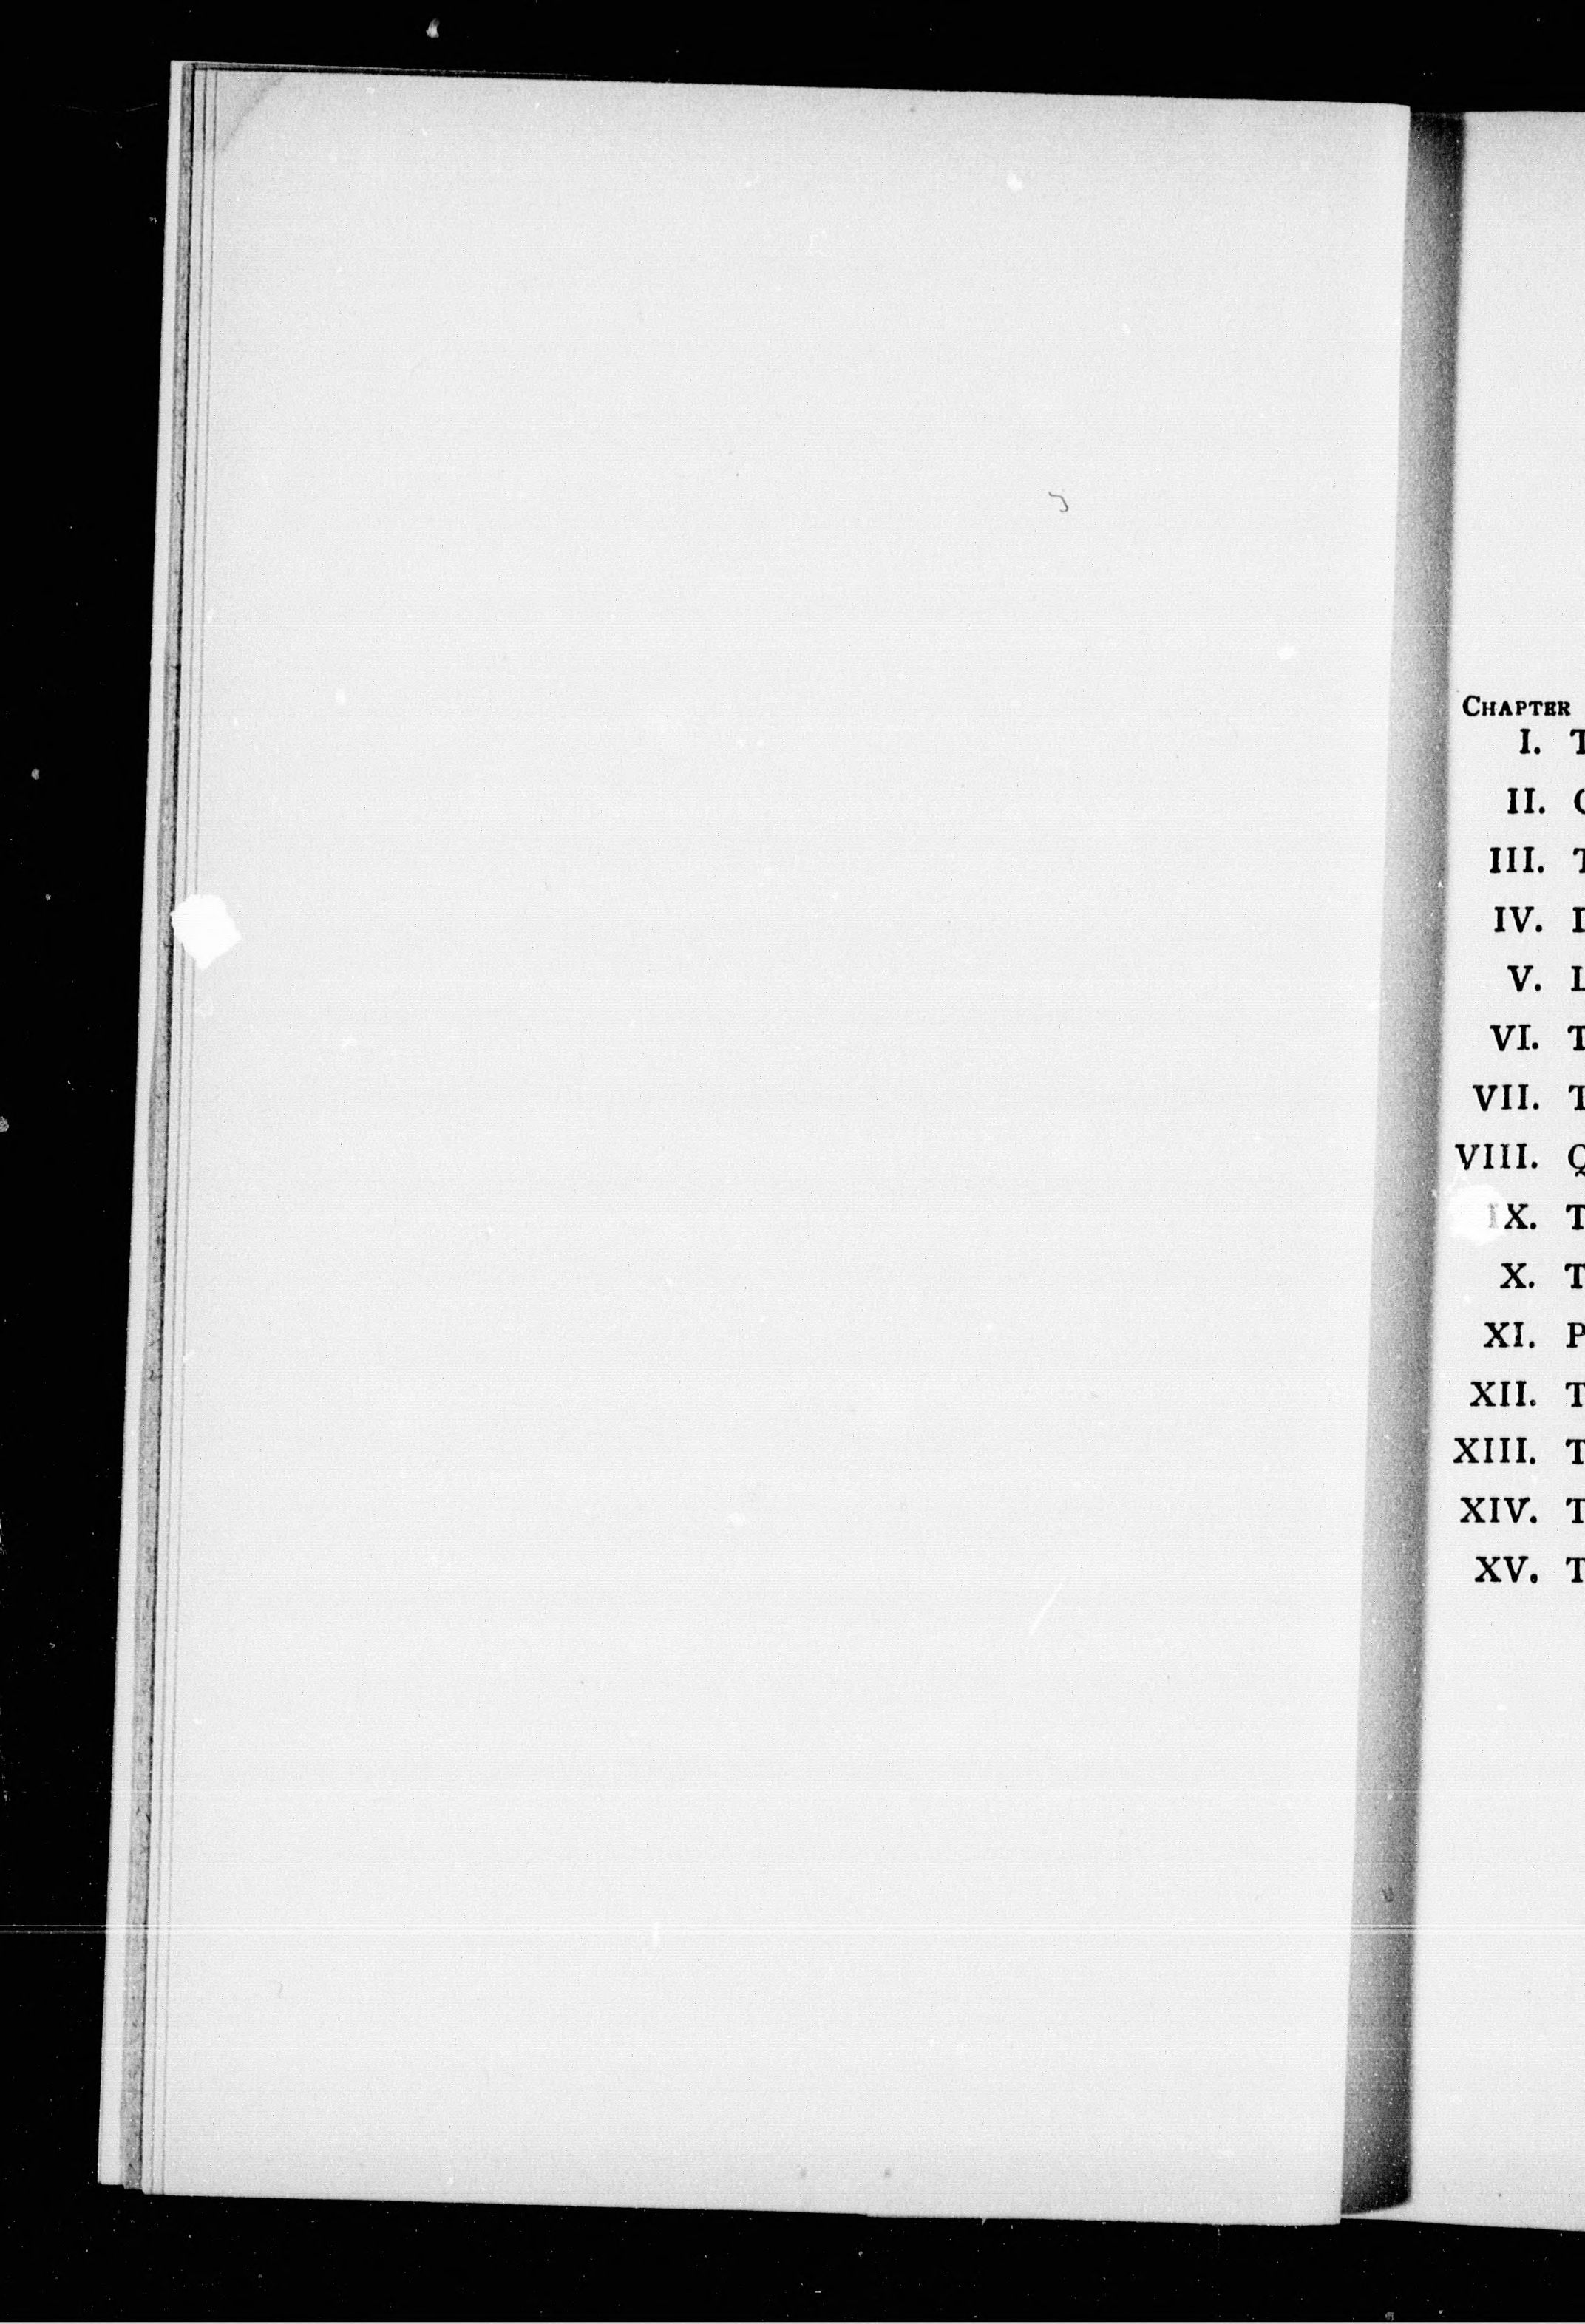 CHAPTER
I. T
II.
III. T
IV.
V. L
VI. T
VII. T
VIII. Q
IX. T
X. T
XI. P
XII. T
XIII. T
XIV. T
XV. T